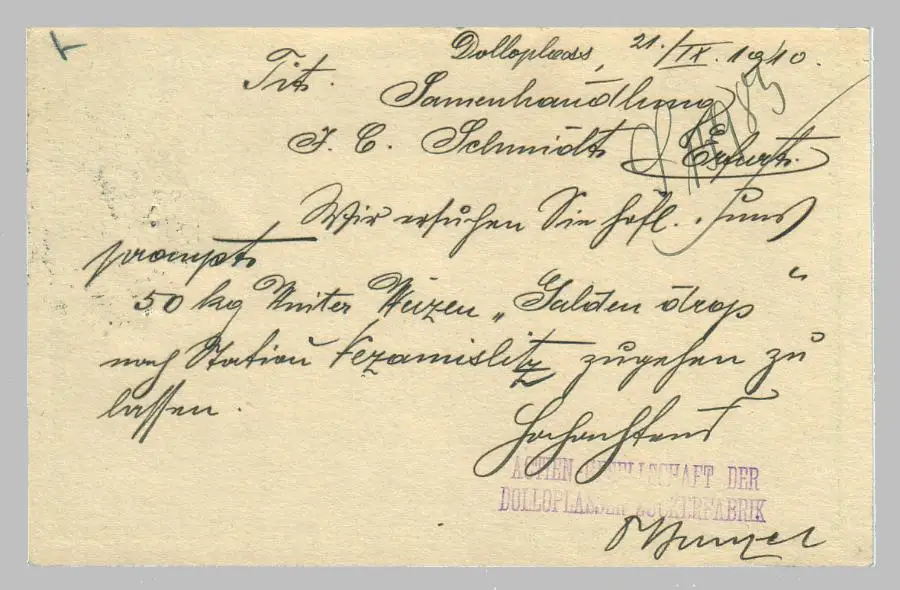 Dolloplass, 21./IX. 1910.
Tit.
Samenhandlung
J. C. Schmidt Erfurt.
Wir ersuchen Sie höfl. uns
prompt
50 kg Winter Weizen „Galden drop“
nach Station Nezamislitz zugehen zu
lassen.
Hochachtend
ACTIEN-GESELLSCHAFT DER
DOLLOPLASSER ZUCKERFABRIK